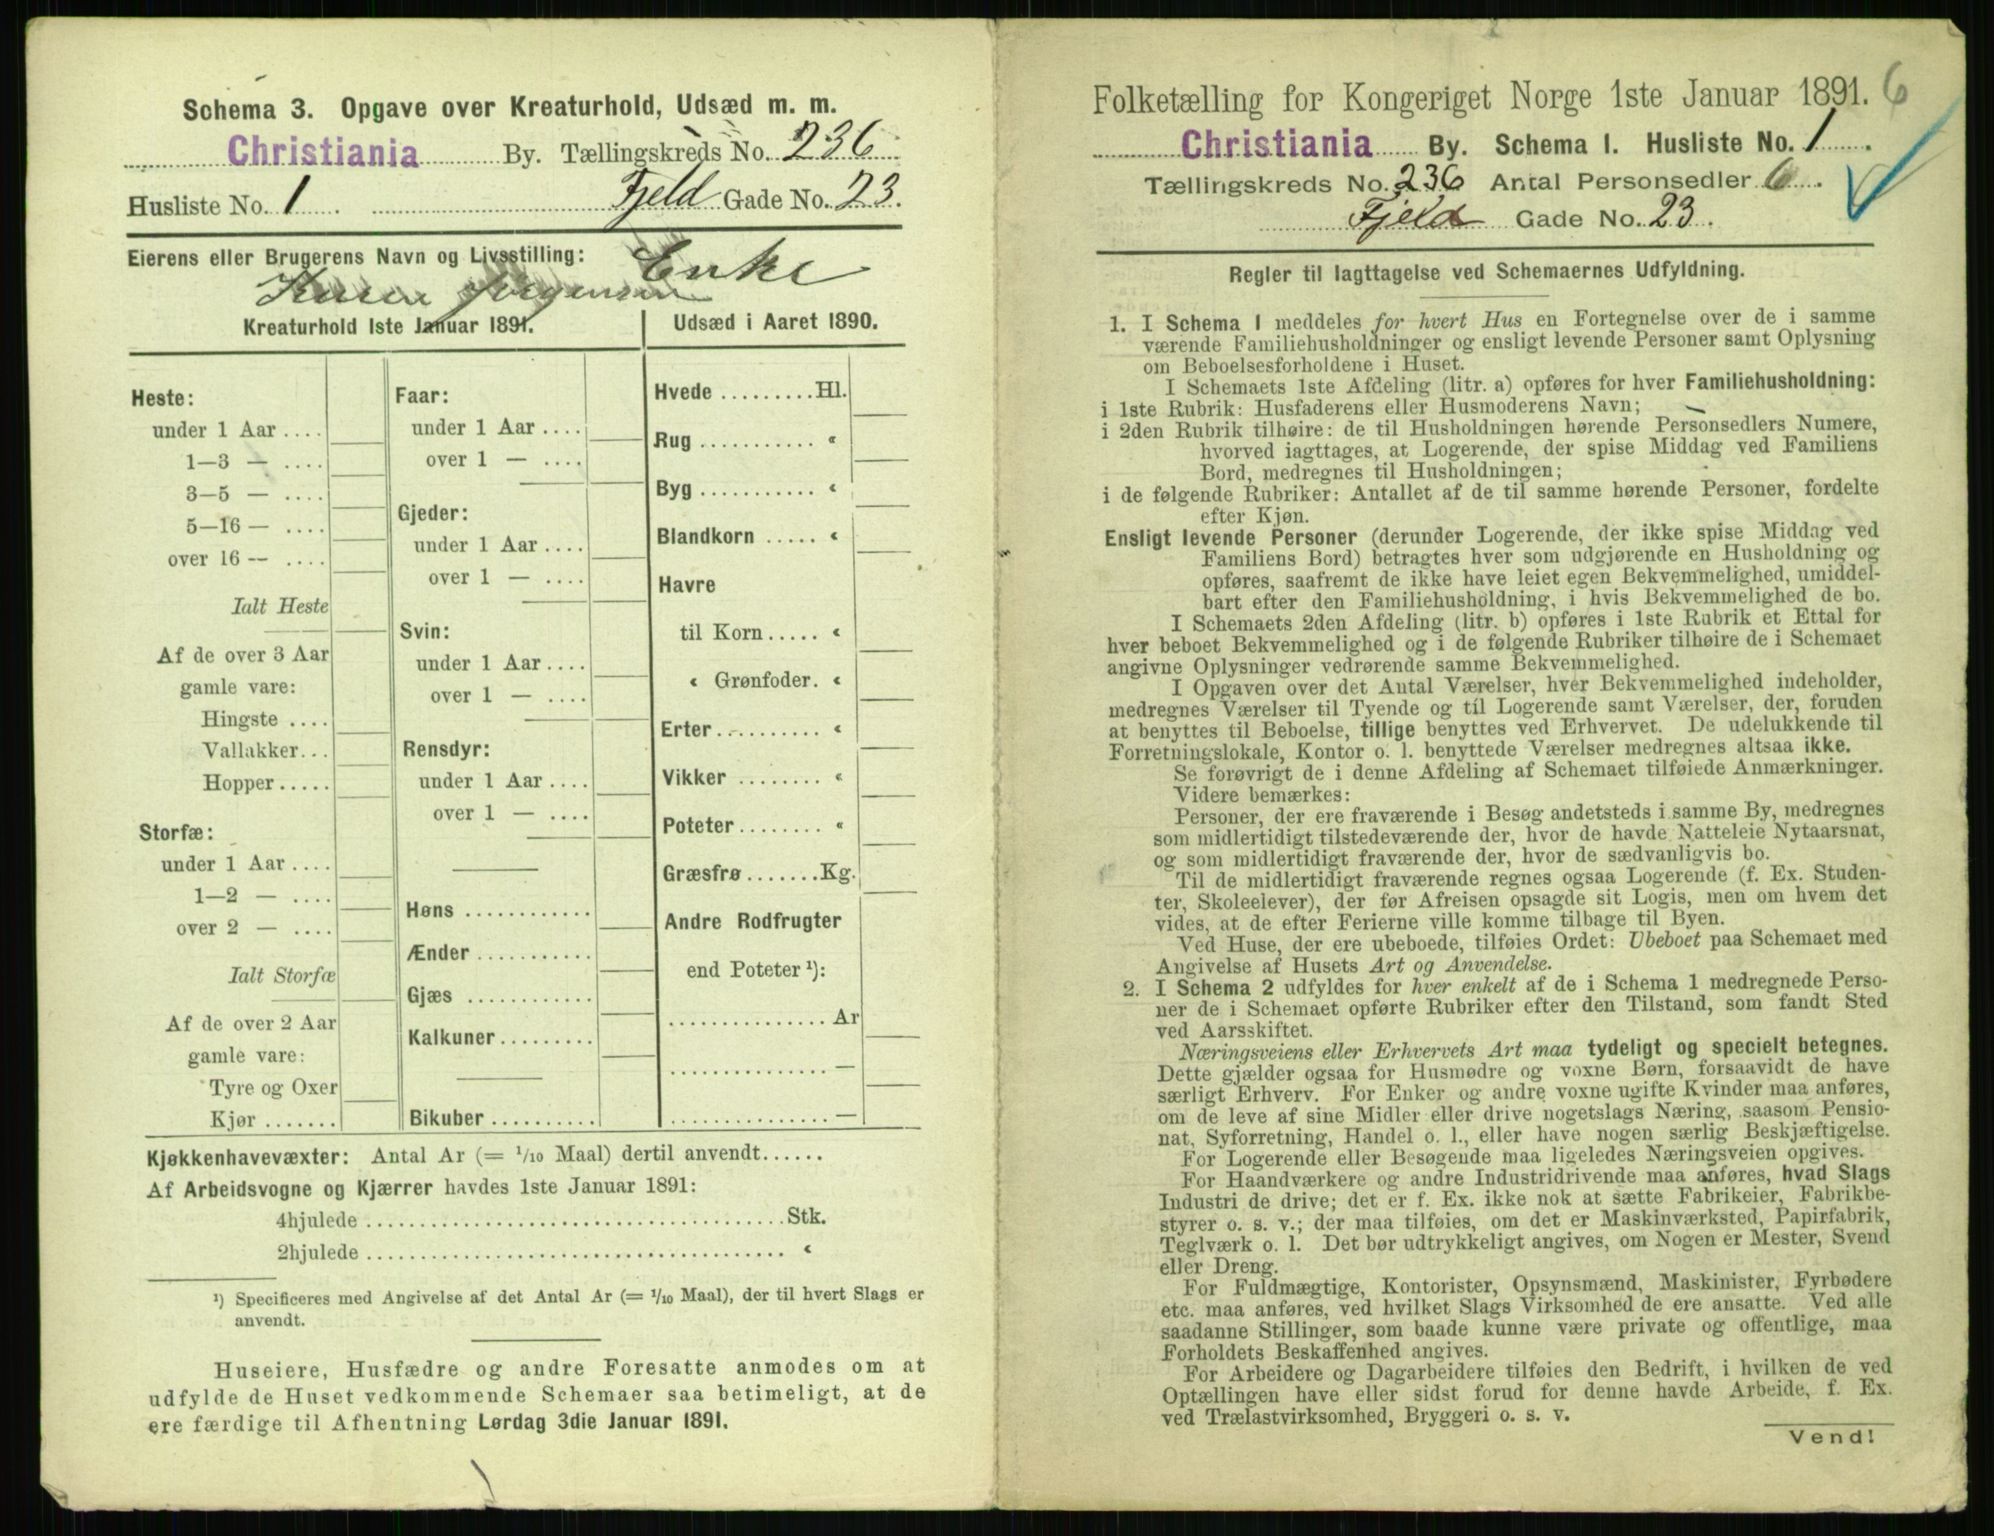 Schema 3. Opgave over Kreaturhold, Udsæd m. m.
Christiania By. Tællingskreds No. 236
Husliste No. 1 Fjeld Gade No. 23.
Eierens eller Brugerens Navn og Livsstilling: Enke
Karen Jørgensen
Kreaturhold 1ste Januar 1891.
Heste:
under 1 Aar ....
1—3 — ....
3—5 — ....
5—16 — ....
over 16 — ....
Ialt Heste
Af de over 3 Aar
gamle vare:
Hingste ....
Vallakker...
Hopper.....
Storfæ:
under 1 Aar ....
1—2 — ....
over 2 — ....
Ialt Storfæ
Af de over 2 Aar
gamle vare:
Tyre og Oxer
Kjør .......
Faar:
under 1 Aar ....
over 1 — ....
Gjeder:
under 1 Aar ....
over 1 — ....
Svin:
under 1 Aar ....
over 1 — ....
Rensdyr:
under 1 Aar ....
over 1 — ....
Høns ............
Ænder ...........
Gjæs ............
Kalkuner.........
Bikuber ..........
Udsæd i Aaret 1890.
Hvede .........Hl.
Rug ........... «
Byg ........... «
Blandkorn ..... «
Havre
til Korn..... «
« Grønfoder. «
Erter.......... «
Vikker ........ «
Poteter........ «
Græsfrø.......Kg.
Andre Rodfrugter
end Poteter ¹):
............... Ar
............... —
............... —
Kjøkkenhavevæxter: Antal Ar (= ¹/₁₀ Maal) dertil anvendt......
Af Arbeidsvogne og Kjærrer havdes 1ste Januar 1891:
4hjulede ........................................Stk.
2hjulede ........................................ «
¹) Specificeres med Angivelse af det Antal Ar (= ¹/₁₀ Maal), der til hvert Slags er
anvendt.
Huseiere, Husfædre og andre Foresatte anmodes om at
udfylde de Huset vedkommende Schemaer saa betimeligt, at de
ere færdige til Afhentning Lørdag 3die Januar 1891.
Folketælling for Kongeriget Norge 1ste Januar 1891. 6
Christiania By. Schema I. Husliste No. 1
Tællingskreds No. 236 Antal Personsedler 6
Fjeld Gade No. 23.
Regler til Iagttagelse ved Schemaernes Udfyldning.
1. I Schema I meddeles for hvert Hus en Fortegnelse over de i samme
værende Familiehusholdninger og ensligt levende Personer samt Oplysning
om Beboelsesforholdene i Huset.
I Schemaets 1ste Afdeling (litr. a) opføres for hver Familiehusholdning:
i 1ste Rubrik: Husfaderens eller Husmoderens Navn;
i 2den Rubrik tilhøire: de til Husholdningen hørende Personsedlers Numere,
hvorved iagttages, at Logerende, der spise Middag ved Familiens
Bord, medregnes til Husholdningen;
i de følgende Rubriker: Antallet af de til samme hørende Personer, fordelte
efter Kjøn.
Ensligt levende Personer (derunder Logerende, der ikke spise Middag ved
Familiens Bord) betragtes hver som udgjørende en Husholdning og
opføres, saafremt de ikke have leiet egen Bekvemmelighed, umiddel-
bart efter den Familiehusholdning, i hvis Bekvemmelighed de bo.
I Schemaets 2den Afdeling (litr. b) opføres i 1ste Rubrik et Ettal for
hver beboet Bekvemmelighed og i de følgende Rubriker tilhøire de i Schemaet
angivne Oplysninger vedrørende samme Bekvemmelighed.
I Opgaven over det Antal Værelser, hver Bekvemmelighed indeholder,
medregnes Værelser til Tyende og til Logerende samt Værelser, der, foruden
at benyttes til Beboelse, tillige benyttes ved Erhvervet. De udelukkende til
Forretningslokale, Kontor o. l. benyttede Værelser medregnes altsaa ikke.
Se forøvrigt de i denne Afdeling af Schemaet tilføiede Anmærkninger.
Videre bemærkes:
Personer, der ere fraværende i Besøg andetsteds i samme By, medregnes
som midlertidigt tilstedeværende der, hvor de havde Natteleie Nytaarsnat,
og som midlertidigt fraværende der, hvor de sædvanligvis bo.
Til de midlertidigt fraværende regnes ogsaa Logerende (f. Ex. Studen-
ter, Skoleelever), der før Afreisen opsagde sit Logis, men om hvem det
vides, at de efter Ferierne ville komme tilbage til Byen.
Ved Huse, der ere ubeboede, tilføies Ordet: Ubeboet paa Schemaet med
Angivelse af Husets Art og Anvendelse.
2. I Schema 2 udfyldes for hver enkelt af de i Schema 1 medregnede Perso-
ner de i Schemaet opførte Rubriker efter den Tilstand, som fandt Sted
ved Aarsskiftet.
Næringsveiens eller Erhvervets Art maa tydeligt og specielt betegnes.
Dette gjælder ogsaa for Husmødre og voxne Børn, forsaavidt de have
særligt Erhverv. For Enker og andre voxne ugifte Kvinder maa anføres,
om de leve af sine Midler eller drive nogetslags Næring, saasom Pensio-
nat, Syforretning, Handel o. l., eller have nogen særlig Beskjæftigelse.
For Logerende eller Besøgende maa ligeledes Næringsveien opgives.
For Haandværkere og andre Industridrivende maa anføres, hvad Slags
Industri de drive; det er f. Ex. ikke nok at sætte Fabrikeier, Fabrikbe-
styrer o. s. v.; der maa tilføies, om det er Maskinværksted, Papirfabrik,
Teglværk o. l. Det bør udtrykkeligt angives, om Nogen er Mester, Svend
eller Dreng.
For Fuldmægtige, Kontorister, Opsynsmænd, Maskinister, Fyrbødere
etc. maa anføres, ved hvilket Slags Virksomhed de ere ansatte. Ved alle
saadanne Stillinger, som baade kunne være private og offentlige, maa
Forholdets Beskaffenhed angives.
For Arbeidere og Dagarbeidere tilføies den Bedrift, i hvilken de ved
Optællingen have eller sidst forud for denne havde Arbeide, f. Ex.
ved Trælastvirksomhed, Bryggeri o. s. v.
Vend!